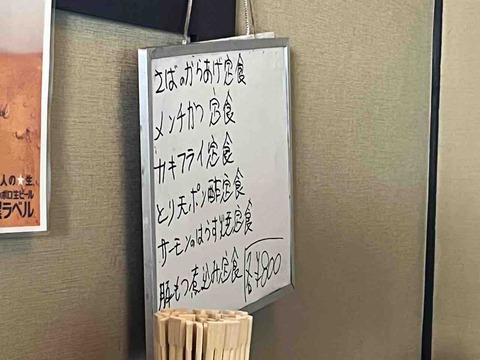 さばのからあげ定食
メンチかつ定食
カキフライ定食
とりモモポン酢定食
サーモンのはらす焼定食
豚もつ煮込み定食
各¥900
人の★生
ッポロ生ビール
ラベル